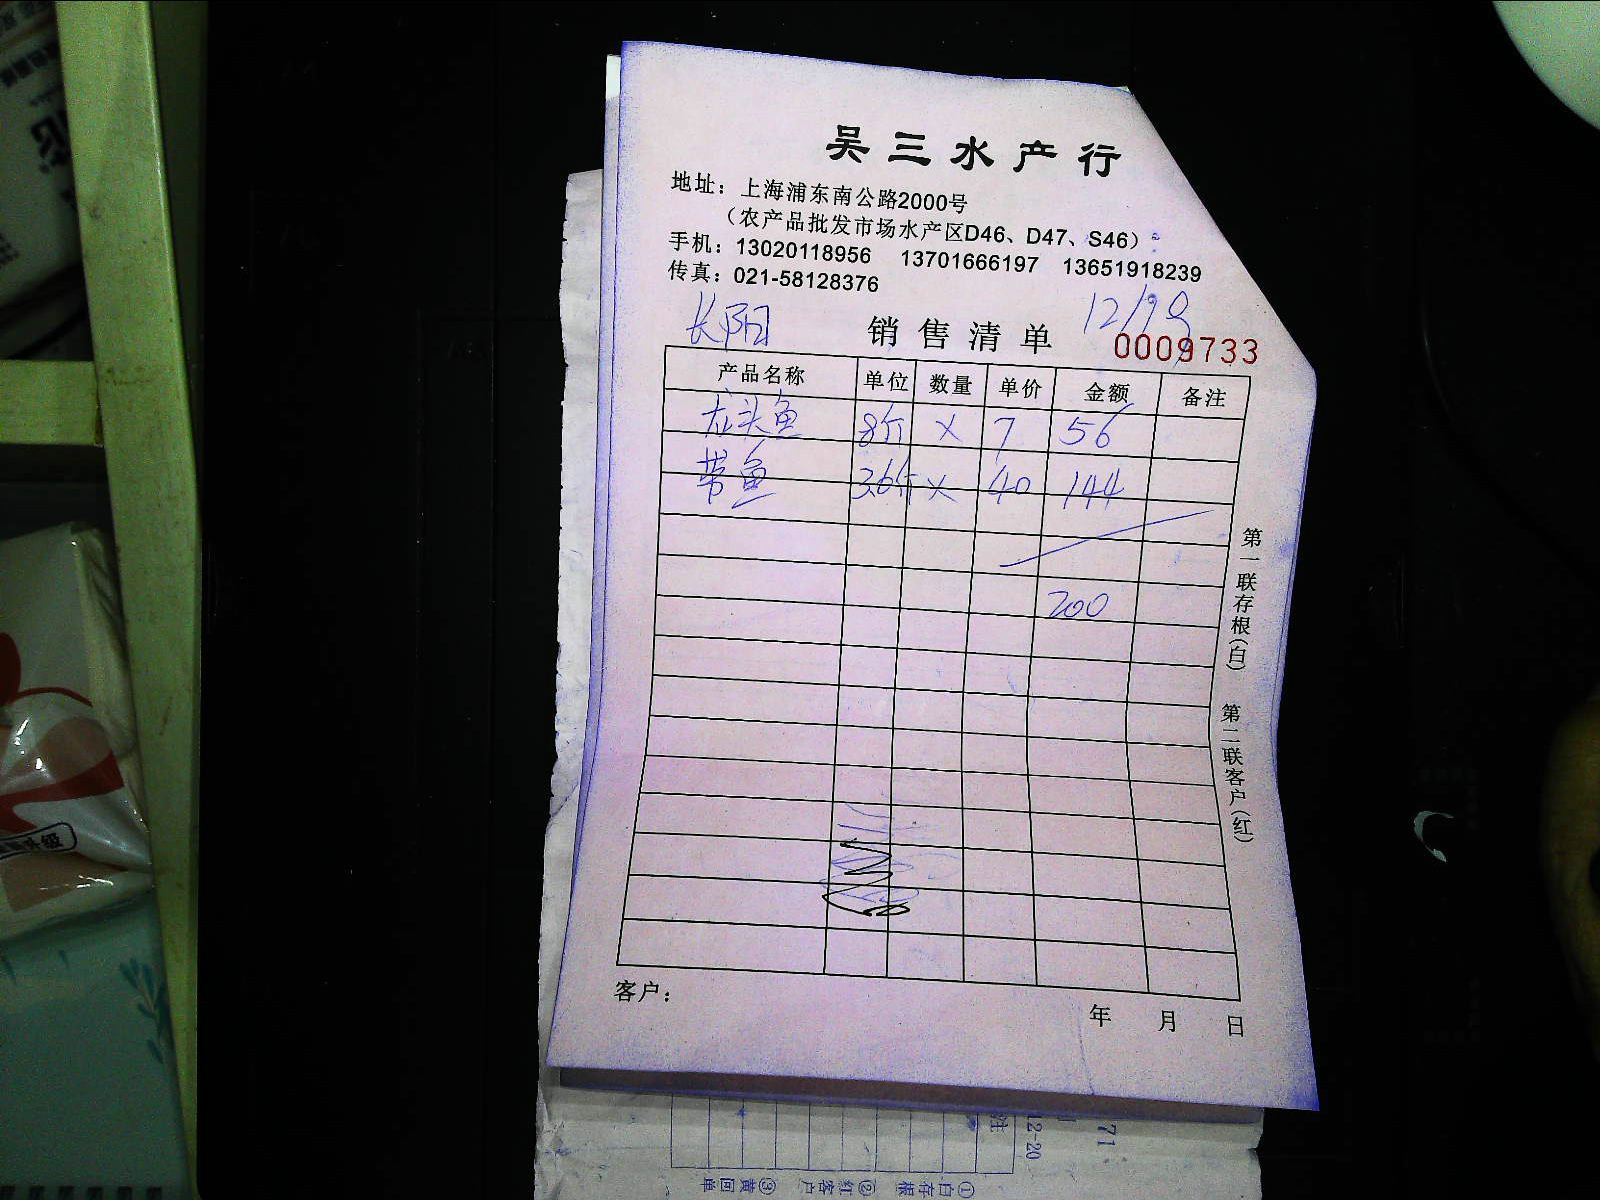 吴三水产行
地址：上海浦东南公路2000号
（农产品批发市场水产区D46、D47、S46）
手机：13020118956 13701666197 13651918239
传真：021-58128376
长阳 销售清单 12/19
0009733
产品名称 单位 数量 单价 金额 备注
龙头鱼 8斤 × 7 56
带鱼 3.6斤 × 40 144
200
第一联存根(白) 第二联客户(红)
客户： 年 月 日
12-20
71
注
①白存根 ②红客户 ③黄回单